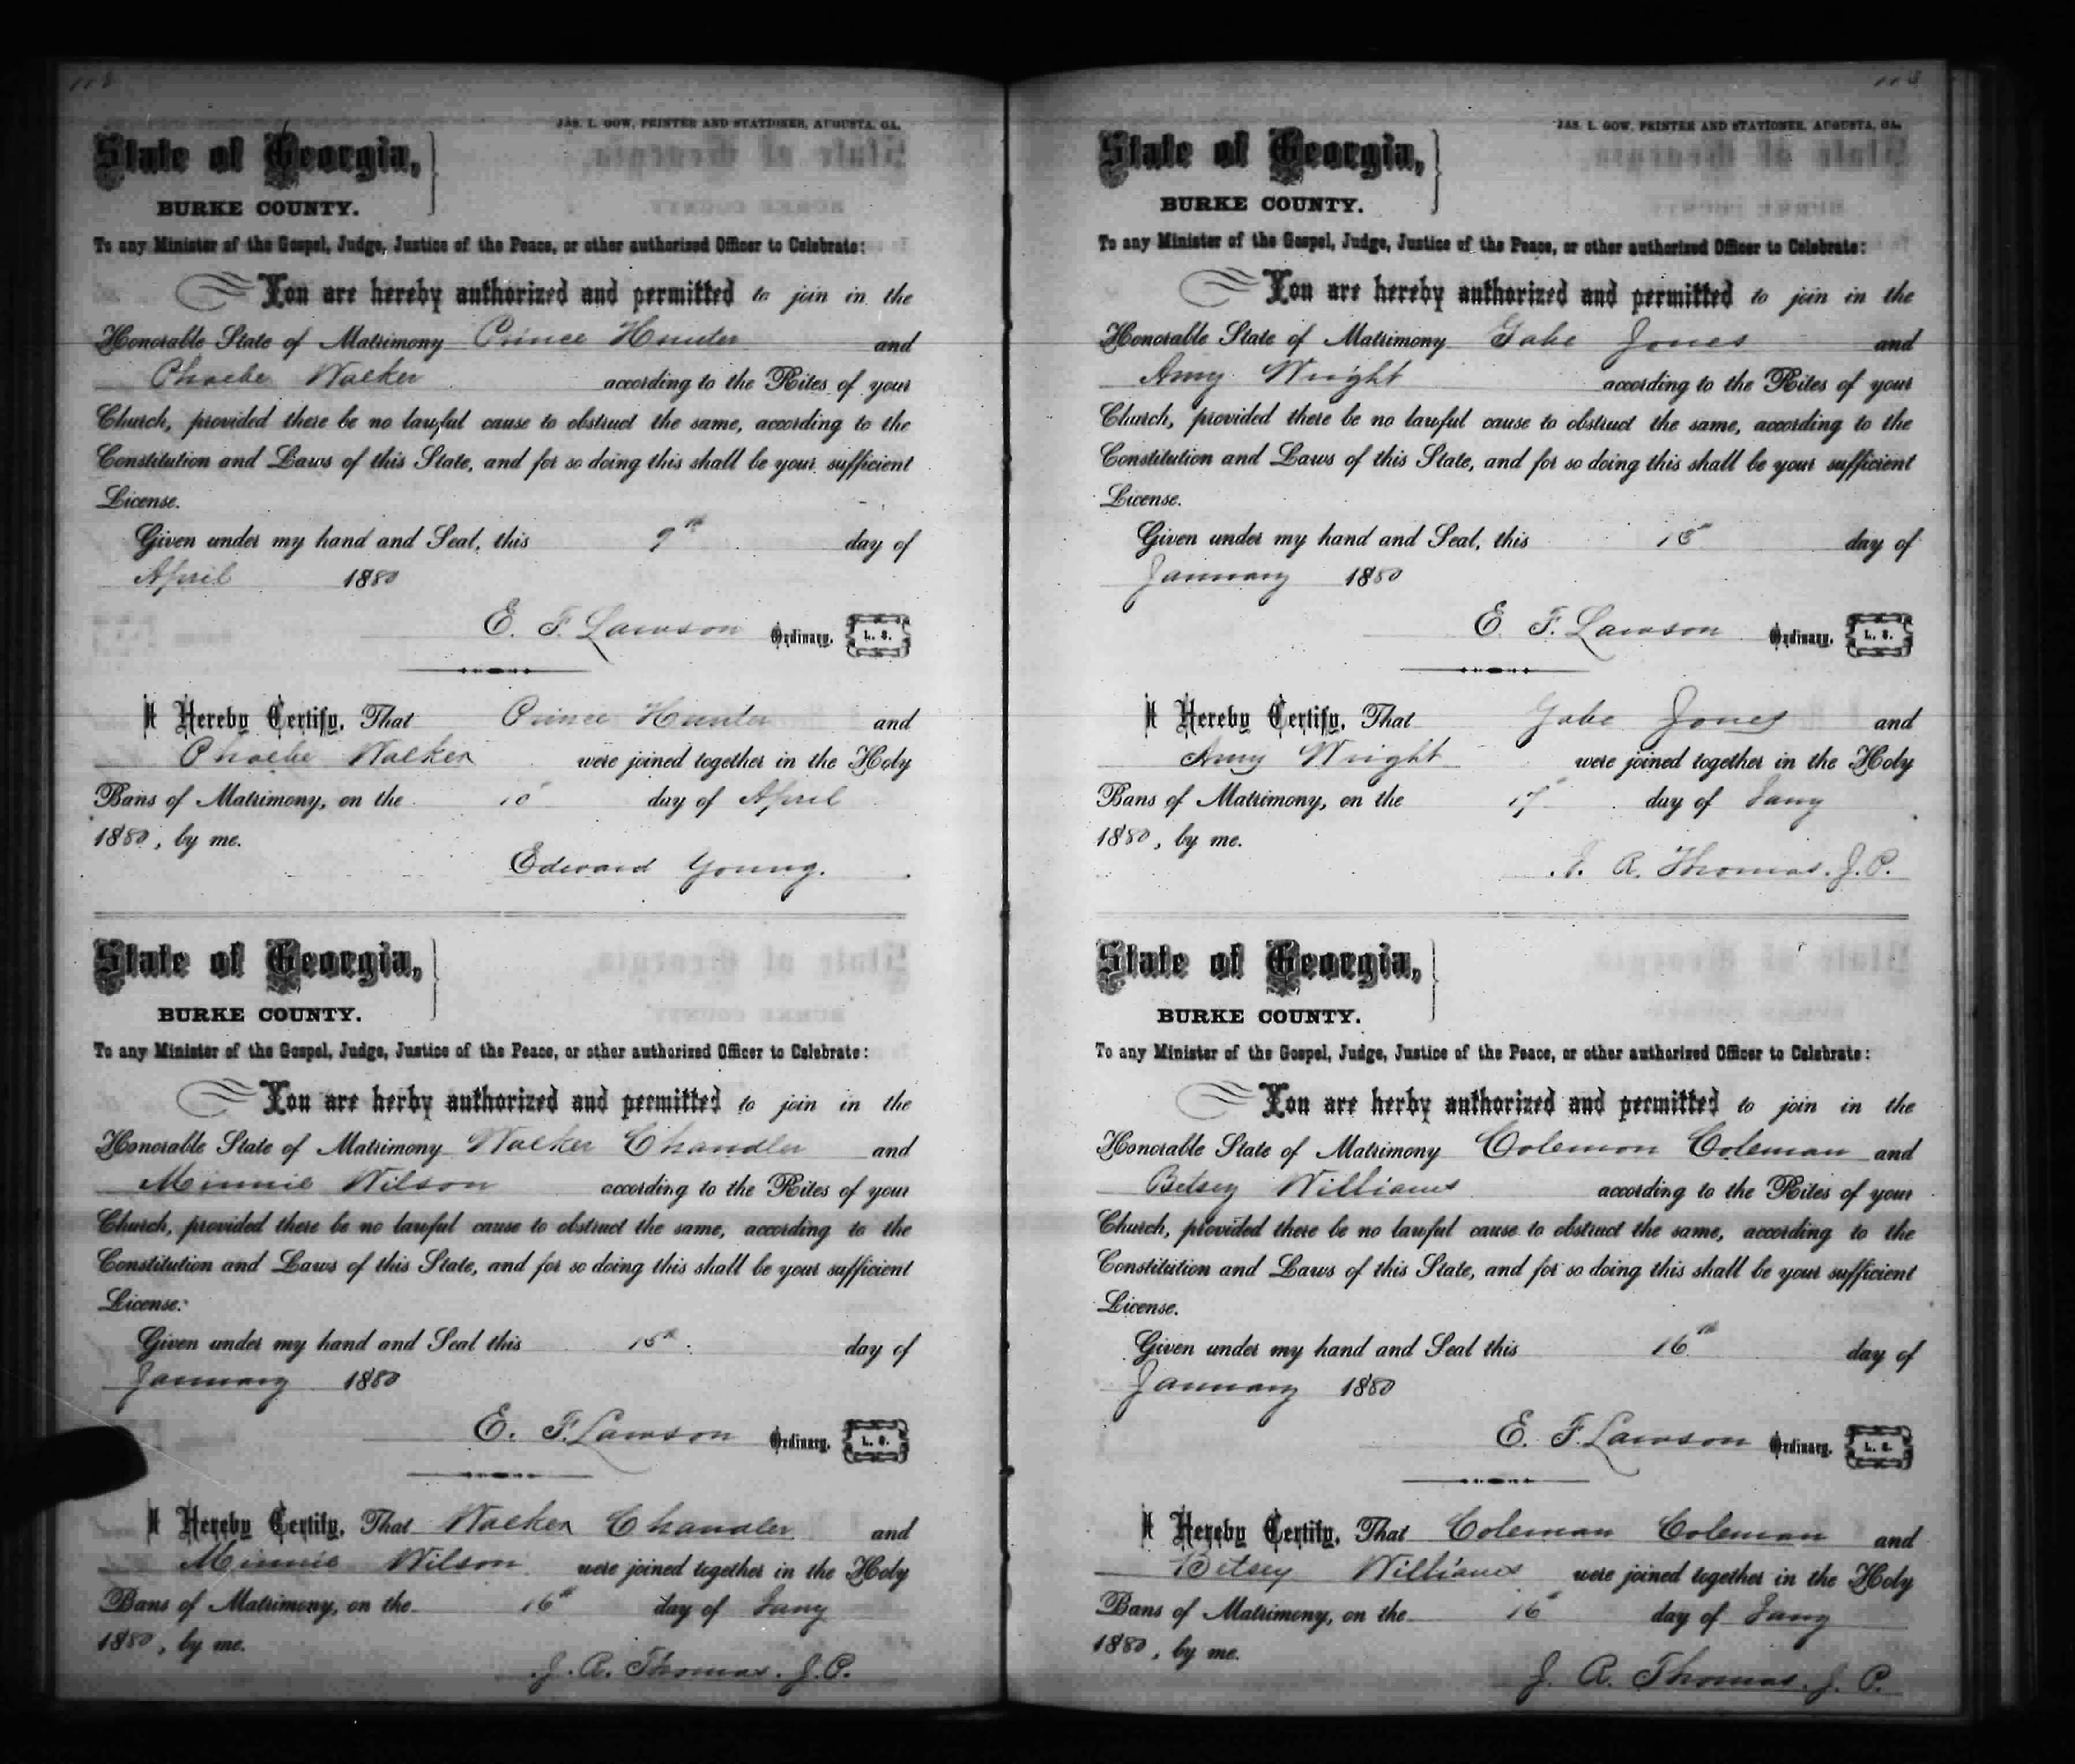 118
JAS. L. GOW, PRINTER AND STATIONER, AUGUSTA, GA.
State of Georgia,
BURKE COUNTY.
To any Minister of the Gospel, Judge, Justice of the Peace, or other authorized Officer to Celebrate:
You are hereby authorized and permitted to join in the
Honorable State of Matrimony Prince Hunter and
Phoebe Walker according to the Rites of your
Church, provided there be no lawful cause to obstruct the same, according to the
Constitution and Laws of this State, and for so doing this shall be your sufficient
License.
Given under my hand and Seal, this 9th day of
April 1880
E. F. Lawson Ordinary. L. S.
I Hereby Certify, That Prince Hunter and
Phoebe Walker were joined together in the Holy
Bans of Matrimony, on the 10 day of April
1880, by me.
Edward Young.
State of Georgia,
BURKE COUNTY.
To any Minister of the Gospel, Judge, Justice of the Peace, or other authorized Officer to Celebrate:
You are herby authorized and permitted to join in the
Honorable State of Matrimony Walker Chandler and
Minnie Wilson according to the Rites of your
Church, provided there be no lawful cause to obstruct the same, according to the
Constitution and Laws of this State, and for so doing this shall be your sufficient
License.
Given under my hand and Seal this 15th day of
January 1880
E. F. Lawson Ordinary. L. S.
I Hereby Certify, That Walker Chandler and
Minnie Wilson were joined together in the Holy
Bans of Matrimony, on the 16th day of Jany
1880, by me.
J. R. Thomas. J. P.
118
JAS. L. GOW, PRINTER AND STATIONER, AUGUSTA, GA.
State of Georgia,
BURKE COUNTY.
To any Minister of the Gospel, Judge, Justice of the Peace, or other authorized Officer to Celebrate:
You are hereby authorized and permitted to join in the
Honorable State of Matrimony Gabe Jones and
Amy Wright according to the Rites of your
Church, provided there be no lawful cause to obstruct the same, according to the
Constitution and Laws of this State, and for so doing this shall be your sufficient
License.
Given under my hand and Seal, this 15 day of
January 1880
E. F. Lawson Ordinary. L. S.
I Hereby Certify, That Gabe Jones and
Amy Wright were joined together in the Holy
Bans of Matrimony, on the 17 day of Jany
1880, by me.
J. R. Thomas. J. P.
State of Georgia,
BURKE COUNTY.
To any Minister of the Gospel, Judge, Justice of the Peace, or other authorized Officer to Celebrate:
You are herby authorized and permitted to join in the
Honorable State of Matrimony Colemon Coleman and
Betsey Williams according to the Rites of your
Church, provided there be no lawful cause to obstruct the same, according to the
Constitution and Laws of this State, and for so doing this shall be your sufficient
License.
Given under my hand and Seal this 16th day of
January 1880
E. F. Lawson Ordinary. L. S.
I Hereby Certify, That Coleman Coleman and
Betsey Williams were joined together in the Holy
Bans of Matrimony, on the 16 day of Jany
1880, by me.
J. R. Thomas. J. P.